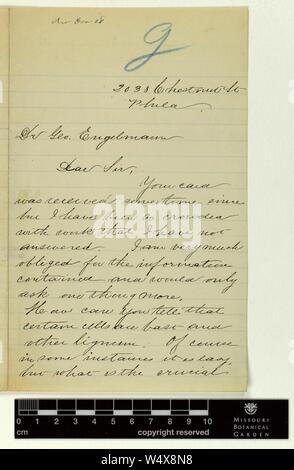 Ans Dec 18
g
2038 Chestnut St
Phila.
Dr Geo. Engelmann
Dear Sir,
Your card
was received some time since
but I have been so crowded
with work that I have not
answered. I am very much
obliged for the information
contained and would only
ask one thing more,
How can you tell that
certain cells are bast and
other ligneum. Of course
in some instances it is easy,
but what is the crucial
alamy
0 1 2 3 4 5 6 7 8 9 10
cm copyright reserved
MISSOURI
BOTANICAL
GARDEN
alamy
Image ID: W4X8N8
www.alamy.com